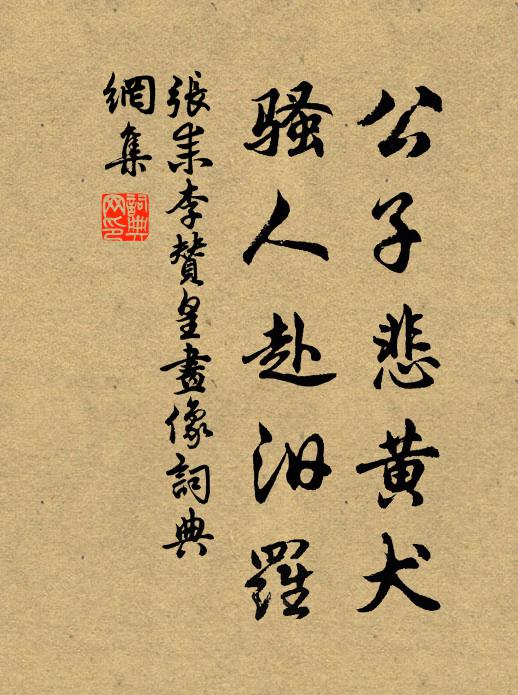 公子悲黄犬
騷人赴汨羅
張耒李贊皇畫像詞典
網集
詞典網印